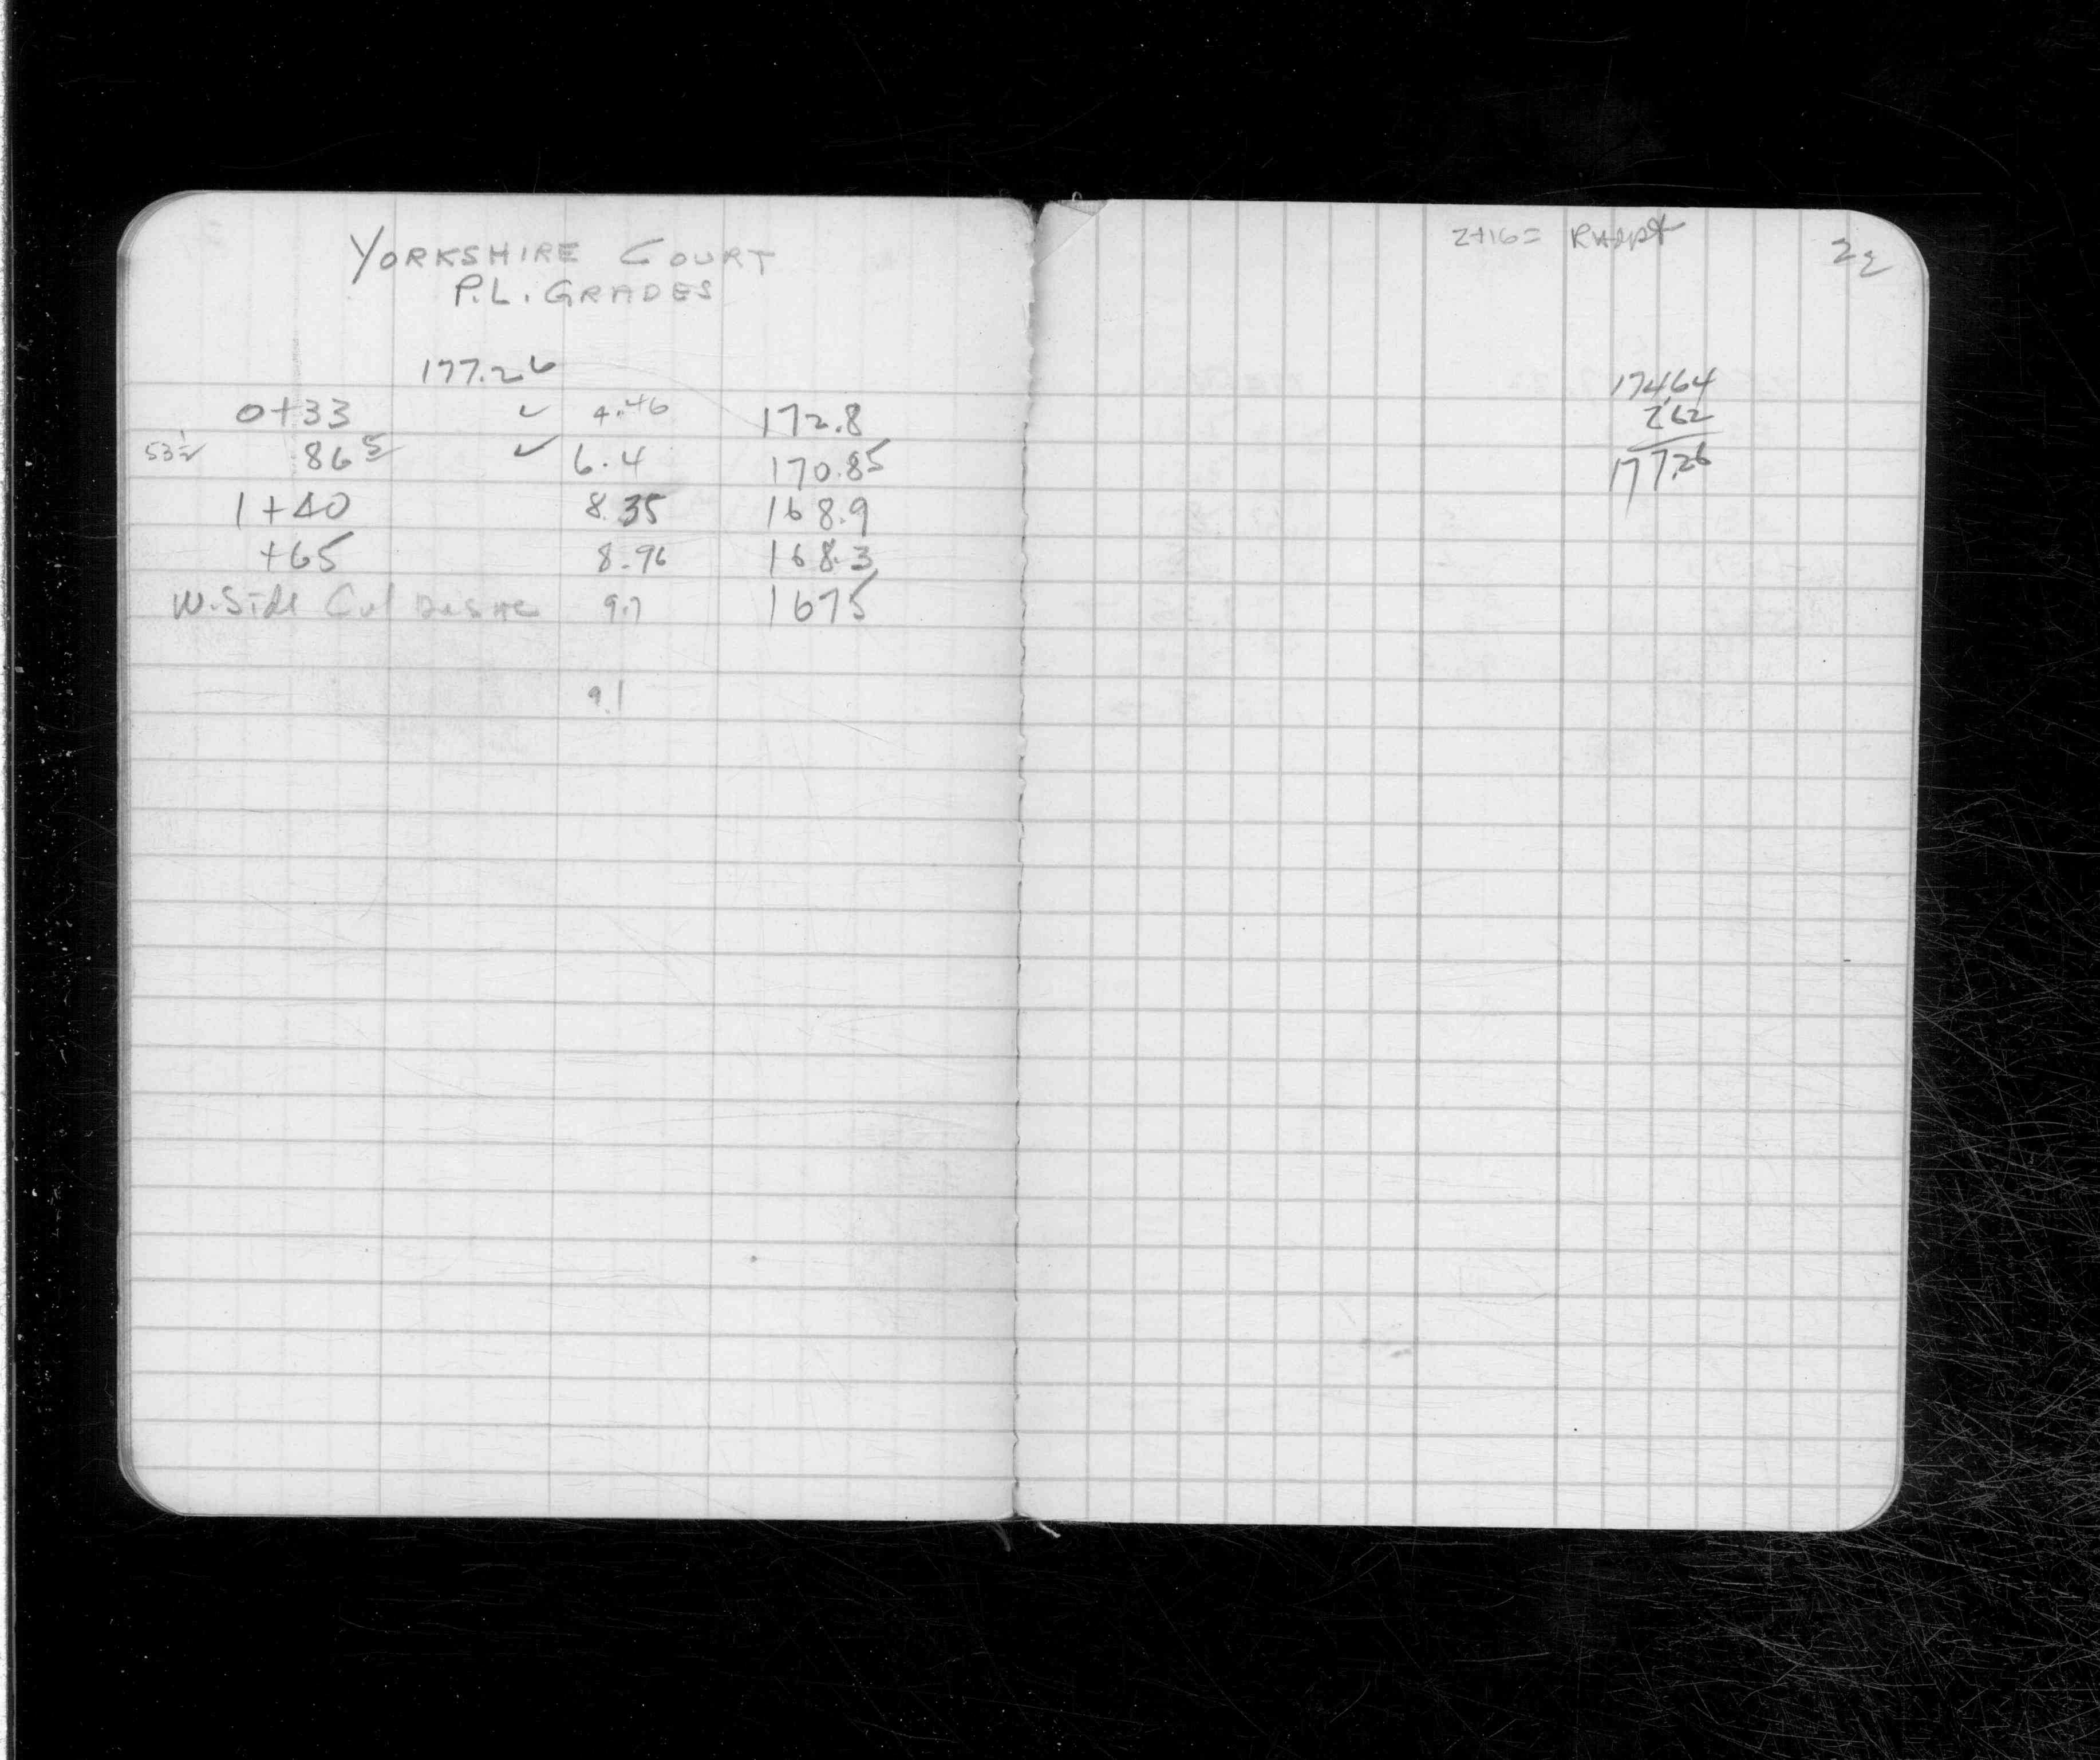 YORKSHIRE COURT
P.L. GRADES
177.26
0+33 ✓ 4.46 172.8
53½ 86⁵ ✓ 6.4 170.85
1+40 8.35 168.9
+65 8.96 168.3
W. Side Cul 9.7 1675
9.1
2+16 =
22
174.64
2.62
177.26